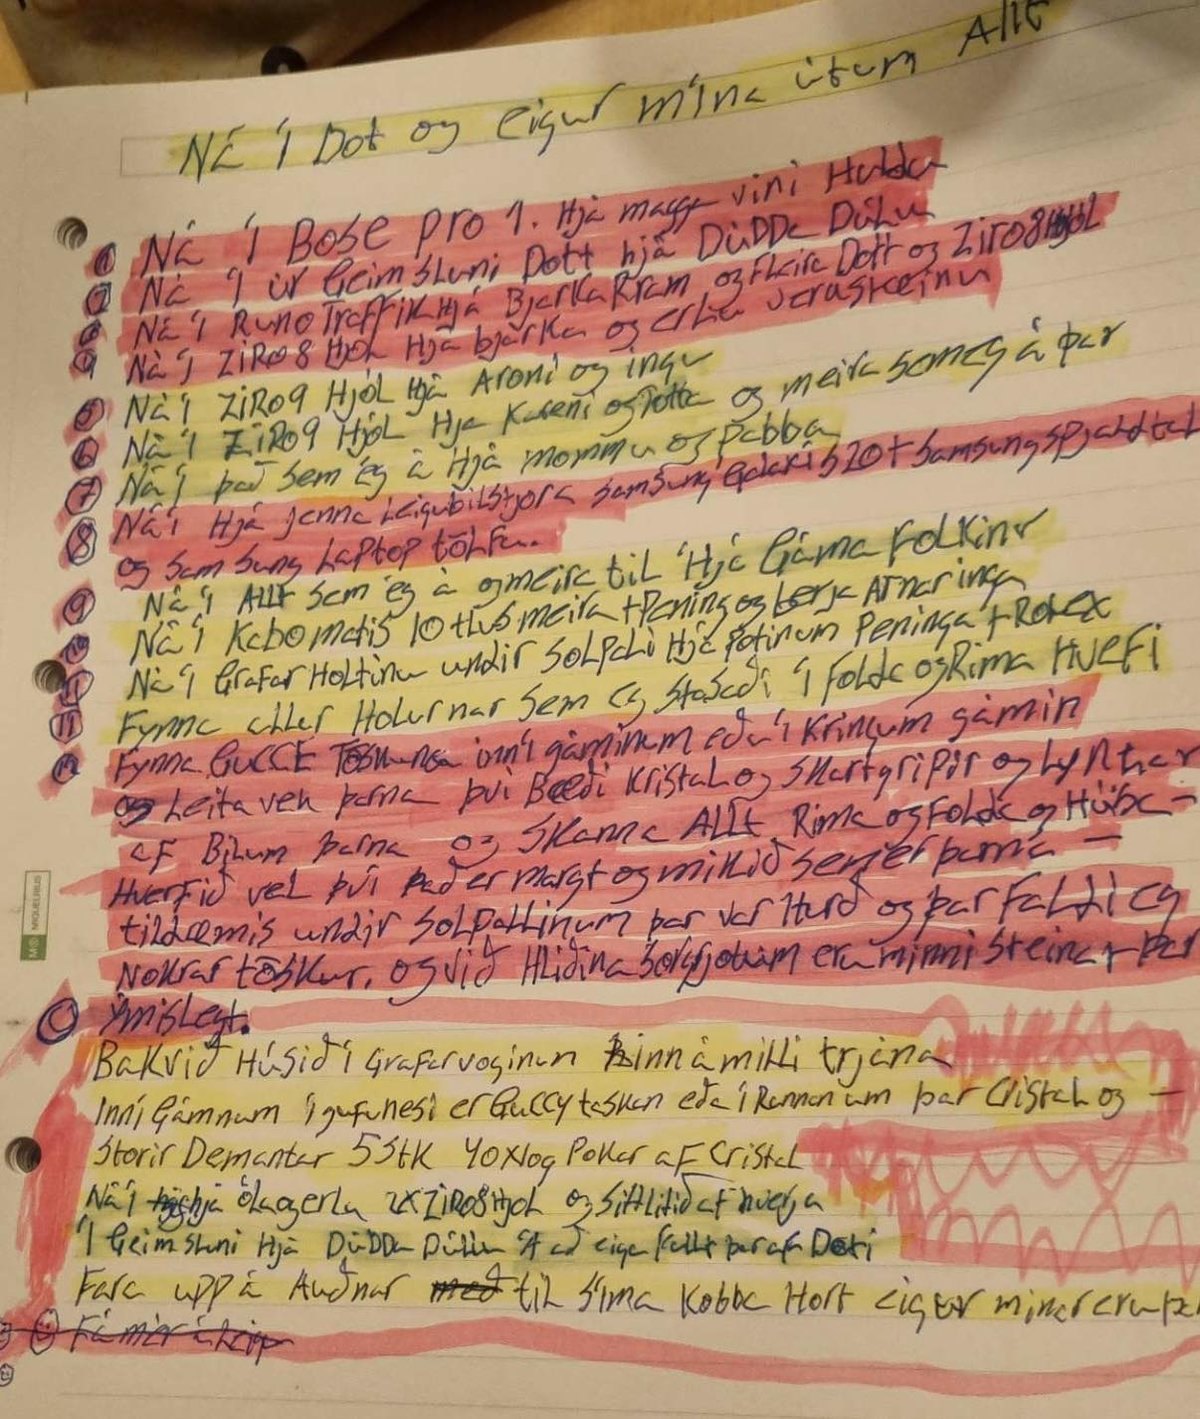 Ná í Dot og eigur mína útum Allt
1 Ná í Bose pro 1. Hjá magga vini Huldu
2 Ná í úr Geimsluni Dott hjá DúDDa Dúllu
Ná í Runo Traffik Hjá Bjarka Rram og fleira Dott og ZiRo8 Hjól
4 Ná í ZiRo8 Hjól Hjá bjarka og erlu veraskeinu
5 Ná í ZiRo9 Hjól Hjá Aroni og ingu
6 Ná í ZiRo9 Hjól Hja Kareni og Totta og meira som eg á þar
7 Ná í það sem ég á Hjá mommu og pabba
8 Ná í Hjá Jenna Leigubilstjora Samsung Galaxi S20+ Samsung spjaldtal
og samsung Laptop tölfu.
9 Ná í Allt sem ég á og meira til Hjá Gáma Folkinu
10 Ná í Kabomatis 10 tlus meira + Pening og berja Arnar inga
Ná í Grafar Holtinu undir Solpali Hjá Potinum Peninga + Rolex
11 Fynna allar Holurnar sem eg staðsedi í Folda og Rima Hverfi
12 Fynna GuCCI Töskuna inní gáminum eða í Kringum gámin
og Leita vel þarna því Bæði Kristal og Skartgripir og Lyklar
af Bilum þarna og Skanna Allt Rima og Folda og Húsa-
Hverfið vel því það er margt og mikið sem er þarna -
tildæmis undir Solpallinum þar var Hurð og þar Faldi eg
Nokrar töskur. og við Hliðina Sorpjotum eru minni Steinar þar
Ýmislegt.
Bakvið Húsið í Grafarvoginum inn á milli trjána
inní Gámnum í gufunesi er Guccy taskan eða í Rennonum þar Cristal og -
Storir Demantar 5Stk 40xlog Pokar aF Cristal
Ná í hjá óla og erlu 2x ZiRo8 Hjol og Sittlitið af hverja
í Geimsluni Hjá DúDDa Dúllu Á að eiga fullt þar af Doti
Fara upp á Auðnar með til Síma Kobba Hort eigur minar eru þar
Fá mér á kip
MIQUELRIUS